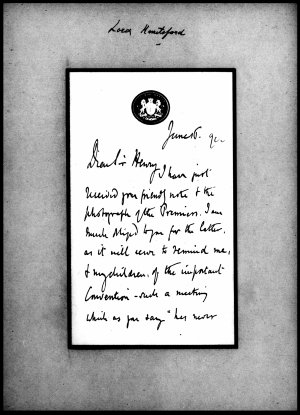 Lord Knutsford
June 6. 90
Dear Sir Henry
I have just
received your friendly note & the
photograph of the Premiers. I am
much obliged to you for the latter,
as it will serve to remind me,
& my children, of the important
Convention - such a meeting
which as you say "has never